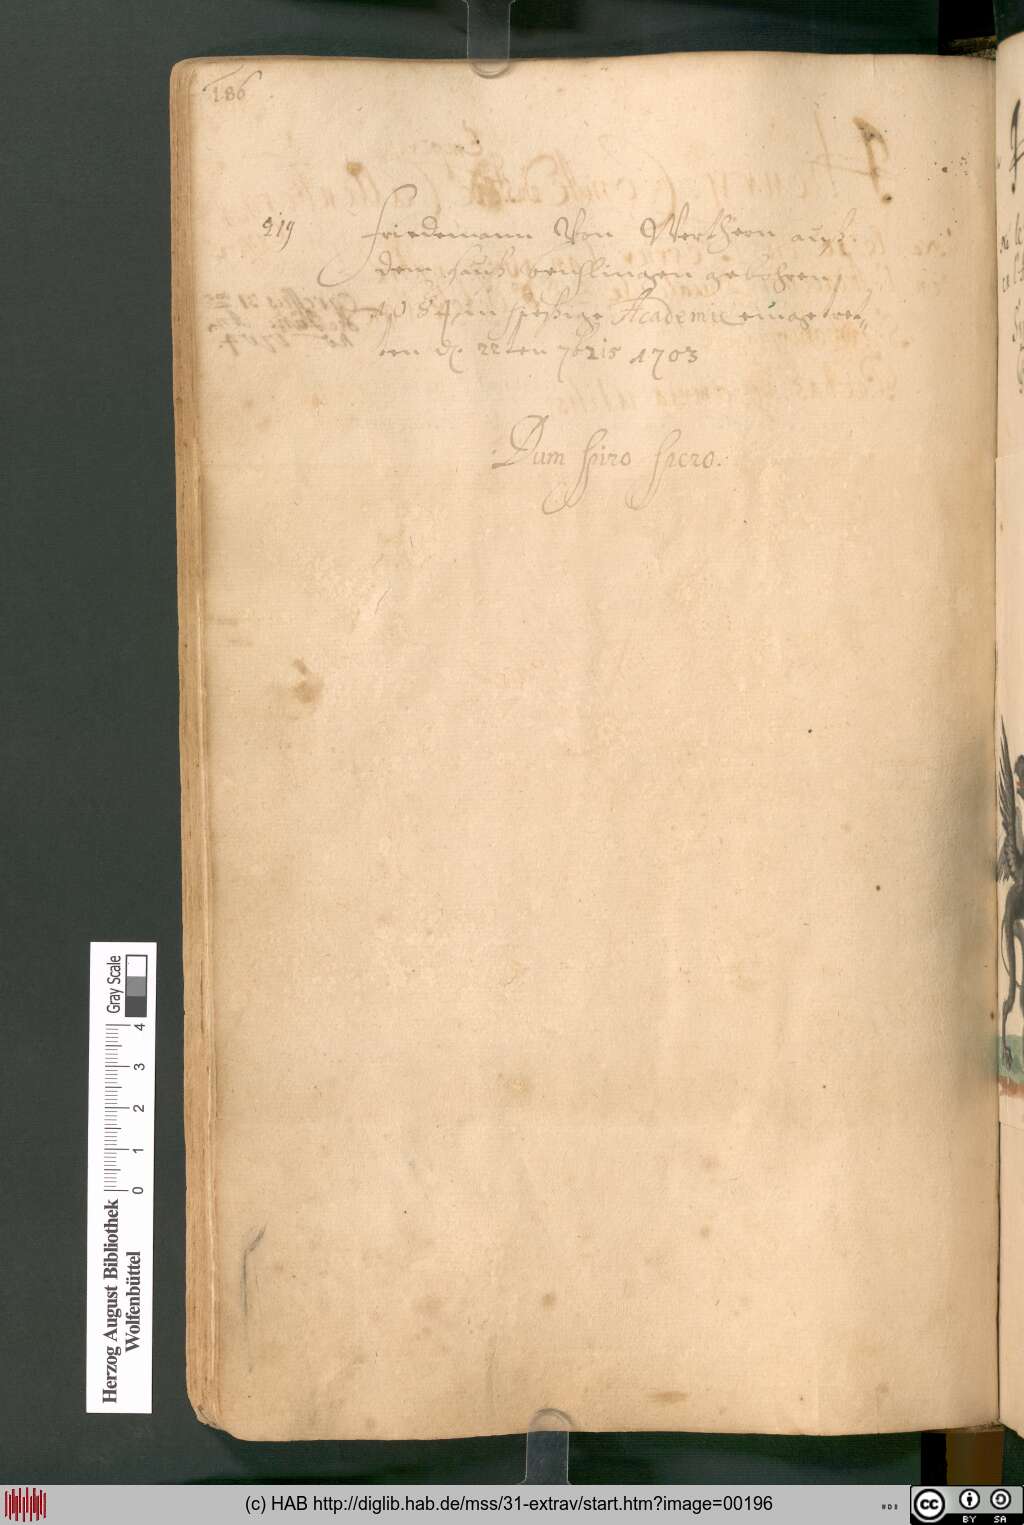 186
219 Friedemann Von Werthern auß
dem hauß beuchlingen gebohren
1684 in hießige Academie eingetret-
ten d. 22ten 7bris 1703
Dum spiro spero.
Herzog August Bibliothek
Wolfenbüttel
0 1 2 3 4
Gray Scale
(c) HAB http://diglib.hab.de/mss/31-extrav/start.htm?image=00196
CC BY SA